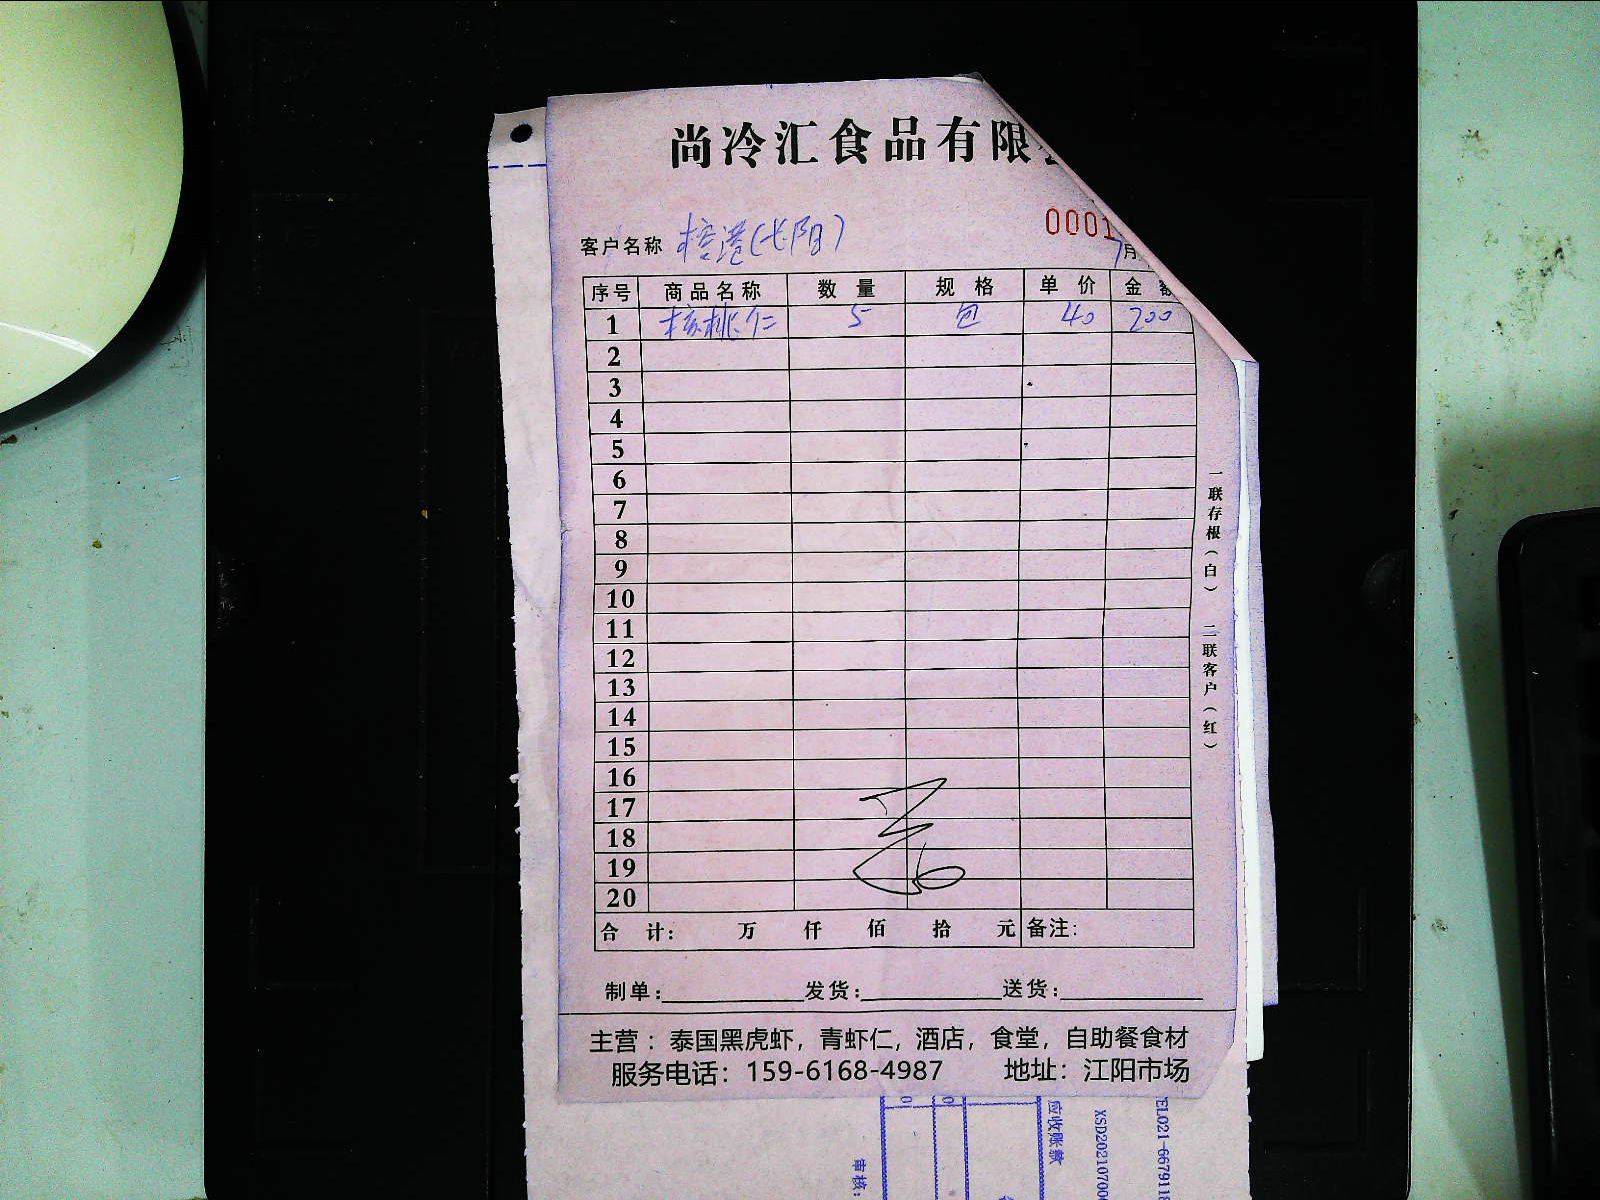 尚冷汇食品有限
0001
客户名称 榕港(七阳) 7月
序号 商品名称 数量 规格 单价 金额
1 核桃仁 5 包 40 200
2
3
4
5
6
7
8
9
10
11
12
13
14
15
16
17
18
19
20
合计: 万 仟 佰 拾 元 备注:
制单: 发货: 送货:
主营：泰国黑虎虾，青虾仁，酒店，食堂，自助餐食材
服务电话：159-6168-4987 地址：江阳市场
一联存根（白） 二联客户（红）
应收账款
审核: